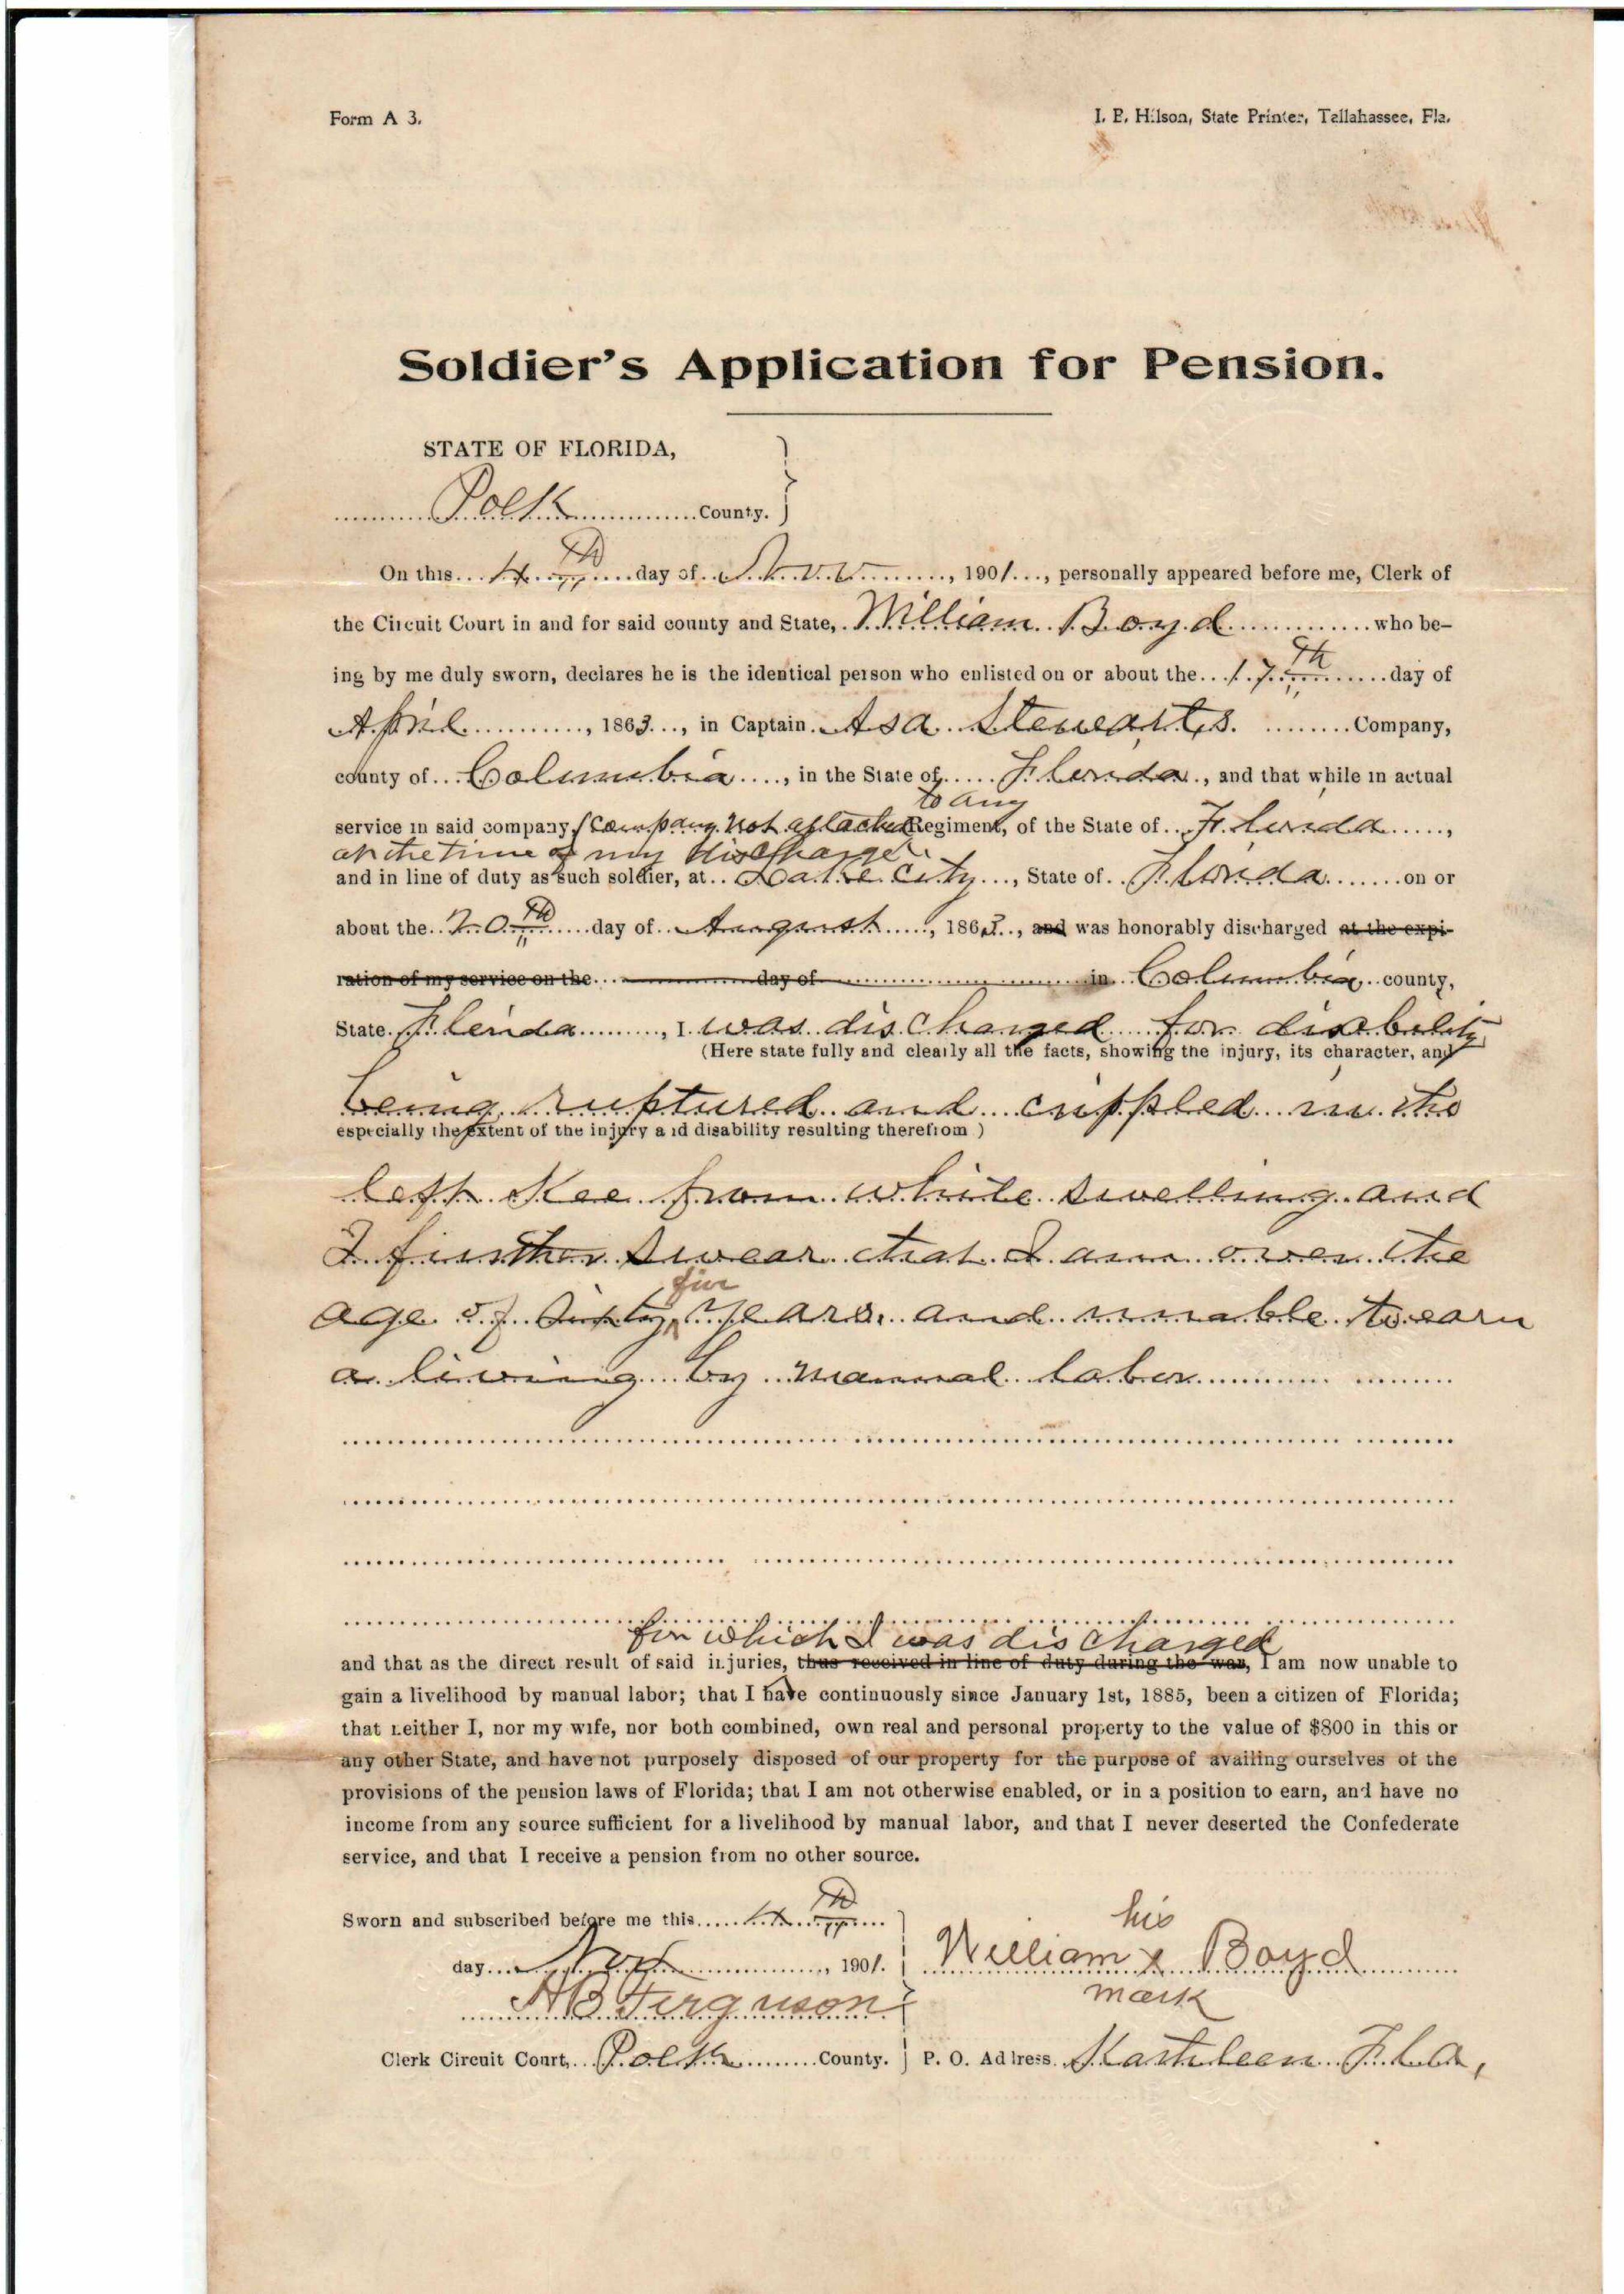 Form A 3.
I. B. Hilson, State Printer, Tallahassee, Fla.
Soldier's Application for Pension.
STATE OF FLORIDA,
Polk County.
On this 4th day of Nov, 1901, personally appeared before me, Clerk of
the Circuit Court in and for said county and State, William Boyd who be-
ing by me duly sworn, declares he is the identical person who enlisted on or about the 17th day of
April, 1863, in Captain Asa Stewart's Company,
county of Columbia, in the State of Florida, and that while in actual
to any
service in said company, (Company not attached Regiment, of the State of Florida,
at the time of my discharge
and in line of duty as such soldier, at Lake City, State of Florida on or
about the 20th day of August, 1863, and was honorably discharged at the expi-
ration of my service on the day of in Columbia county,
State Florida, I was discharged for disability
(Here state fully and clearly all the facts, showing the injury, its character, and
being ruptured and crippled in the
especially the extent of the injury and disability resulting therefrom)
left Knee from white swelling and
I further swear that I am over the
five
age of Sixty years, and unable to earn
a living by manual labor
for which I was discharged
and that as the direct result of said injuries, thus received in line of duty during the war, I am now unable to
gain a livelihood by manual labor; that I have continuously since January 1st, 1885, been a citizen of Florida;
that neither I, nor my wife, nor both combined, own real and personal property to the value of $800 in this or
any other State, and have not purposely disposed of our property for the purpose of availing ourselves of the
provisions of the pension laws of Florida; that I am not otherwise enabled, or in a position to earn, and have no
income from any source sufficient for a livelihood by manual labor, and that I never deserted the Confederate
service, and that I receive a pension from no other source.
Sworn and subscribed before me this 4th
day Nov, 1901.
his
William x Boyd
mark
A B Ferguson
Clerk Circuit Court, Polk County.
P. O. Address Kathleen Fla,